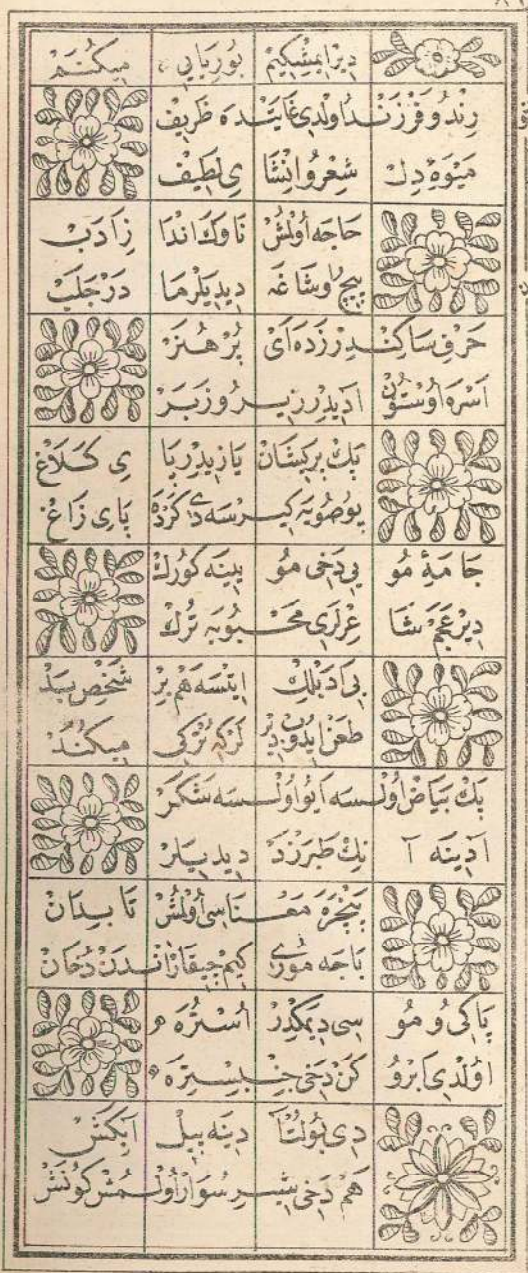 ۸۹
دِيرْ اِيمِشْكِيمْ بُورِيَايِي مِيكُنَمْ
رِنْد و فَرْزَنْد اُولْدِي غَايَتْدَه ظَرِيفْ
مَيْوَهٔ دِلْ شِعْر و اِنْشَايِ لَطِيفْ
حَاجَه اُولْمُشْ نَاوَكْ اَنْدَازِ اَدَبْ
پِيچْ اُوشَاغَه دِيدِيلَرْ مَادَرْ جَلَبْ
حَرْفِ سَاكِنْدِرْ زَدَه اَيْ پُرْ هُنَرْ
اَسْرَه اُوسْتُونْ اَدِيدِرْ زِير و زَبَرْ
پَكْ پَرِيشَانْ يَازِيدِرْ پَايِ كَلَاغْ
پُوصُويَه كِيرْسَه دِي كَرْدَه پَايِ زَاغْ
جَامَهٔ مُو بِي دَخِي مُويِينَه كُورْكْ
دِيرْ عَجَمْ شَاعِرْلَرِي مَحْبُوبَه تُرْكْ
بِي اَدَبْلِكْ اِيتْسَه هَمْ بِرْ شَخْصِ بَدْ
طَعْن اِيدُوبْ دِيرْلَرْ كِه تُرْكِي مِيكُنَدْ
پَكْ بَيَاضْ اُولْسَه اَيُو اُولْسَه شَكَرْ
آدِينَه آنِكْ طَبَرْزَدْ دِيدِيلَرْ
پَنْجَرَه مَعْنَاسِي اُولْمُشْ تَابِدَانْ
بَاجَه مُورِي كِيمْ چِيقَارْ اَنْدَنْ دُخَانْ
پَاكِي و مُوسِي دِيمَكْدِرْ اُسْتُرَه
اُولْدِي اَبْرُو كَنْ دَخِي جِنْبِسْتِرَه
دِي بُولُتْ آدِينَه پِيلِ آبْكَشْ
هَمْ دَخِي شِيرْ سُوَارْ اُولْمُشْ كُونَشْ